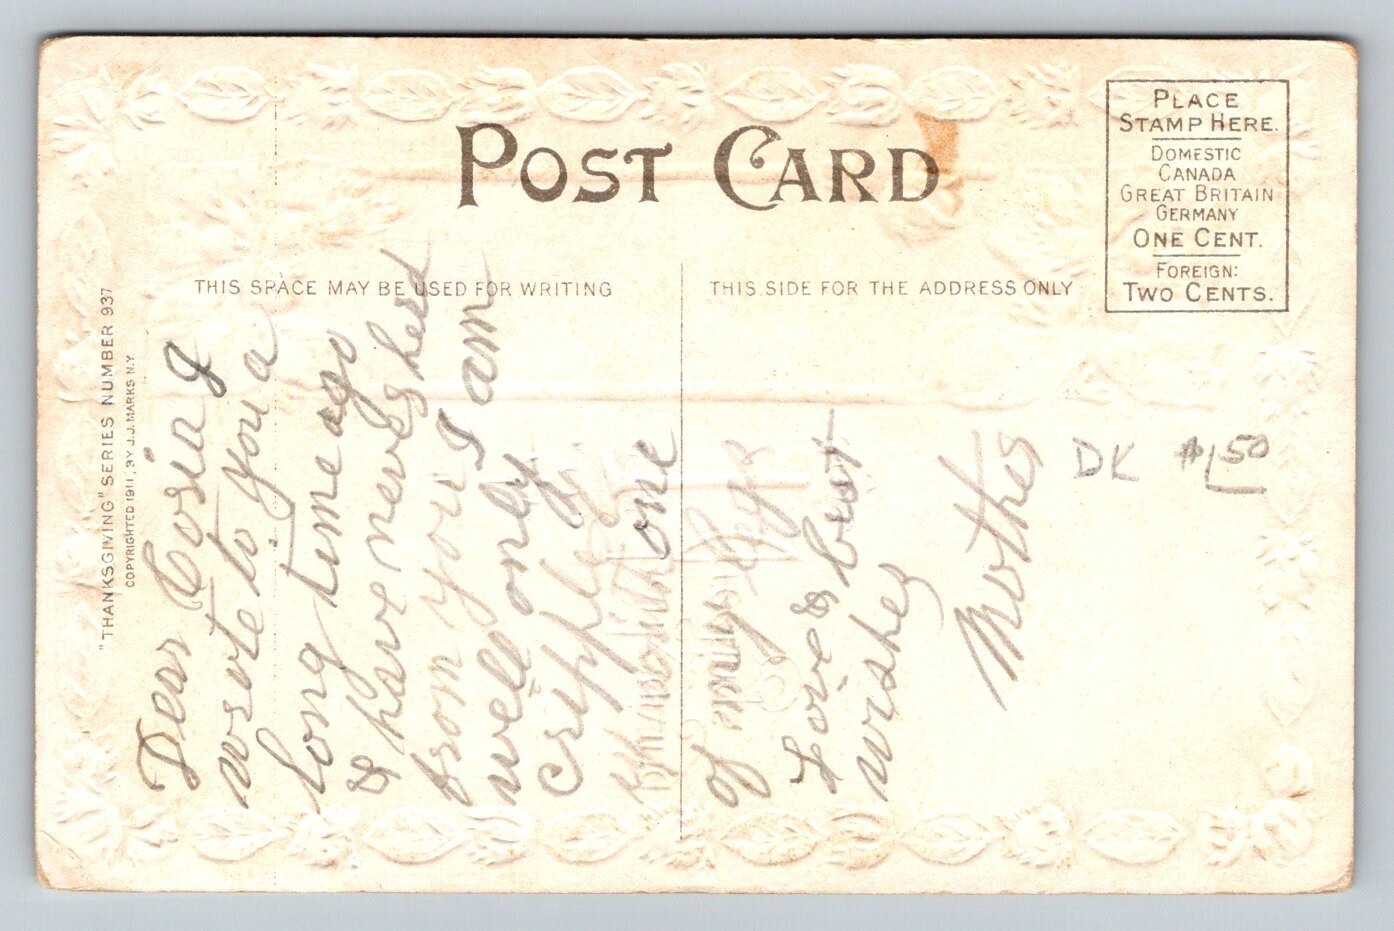 POST CARD
PLACE
STAMP HERE.
DOMESTIC
CANADA
GREAT BRITAIN
GERMANY
ONE CENT.
FOREIGN:
TWO CENTS.
THIS SPACE MAY BE USED FOR WRITING
THIS SIDE FOR THE ADDRESS ONLY
"THANKSGIVING" SERIES NUMBER 937
COPYRIGHTED 1911, BY J.J. MARKS N.Y.
Dear Cosia I
wrote to you a
long time ago
& have never herd
from you I am
well only
cripple
one
of my
Love & best
wishes
Mother
DK $1.50